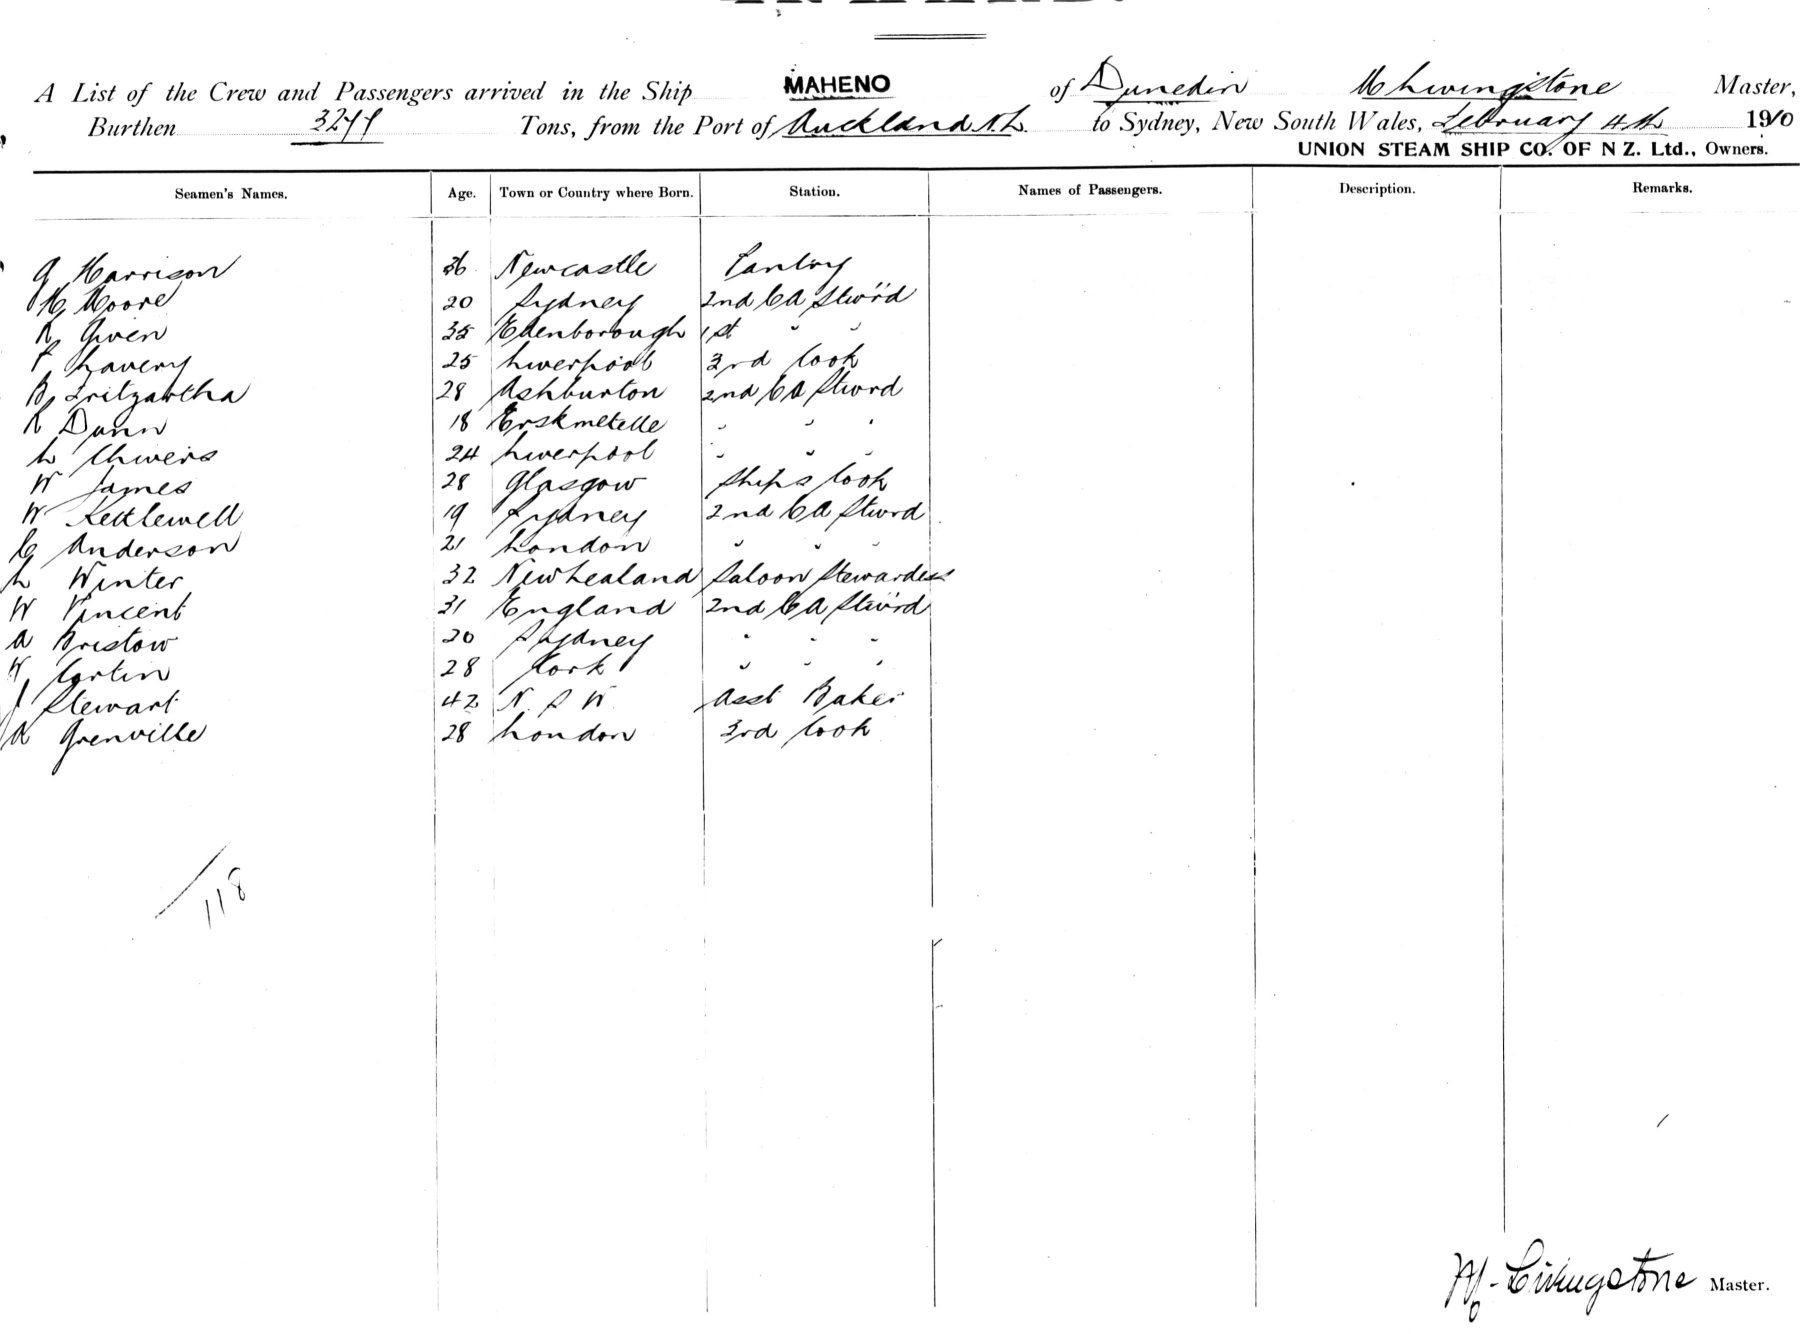 A List of the Crew and Passengers arrived in the Ship MAHENO of Dunedin M Livingstone Master,
Burthen Tons, from the Port of Auckland N.Z. to Sydney, New South Wales, February 4th 1910
UNION STEAM SHIP CO. OF N Z. Ltd., Owners.
Seamen's Names. Age. Town or Country where Born. Station. Names of Passengers. Description. Remarks.
G Harrison 36 Newcastle Pantry
H Moore 20 Sydney 2nd Cl A Stwrd
R Owen 35 Edenborough 1st " "
F Lavery 25 Liverpool 3rd Cook
B 28 Ashburton 2nd Cl A Stwrd
R Dunn 18 " " "
L Chivers 24 Liverpool " " "
W James 28 Glasgow Ships Cook
W Kettlewell 19 Sydney 2nd Cl A Stwrd
C Anderson 21 London " " "
L Winter 32 New Zealand Saloon Stewardess
W Vincent 31 England 2nd Cl A Stwrd
A Bristow 20 Sydney " " "
W 28 Cork " " "
J Stewart 42 N. S W Asst Baker
A Grenville 28 London 3rd Cook
118
M Livingstone Master.